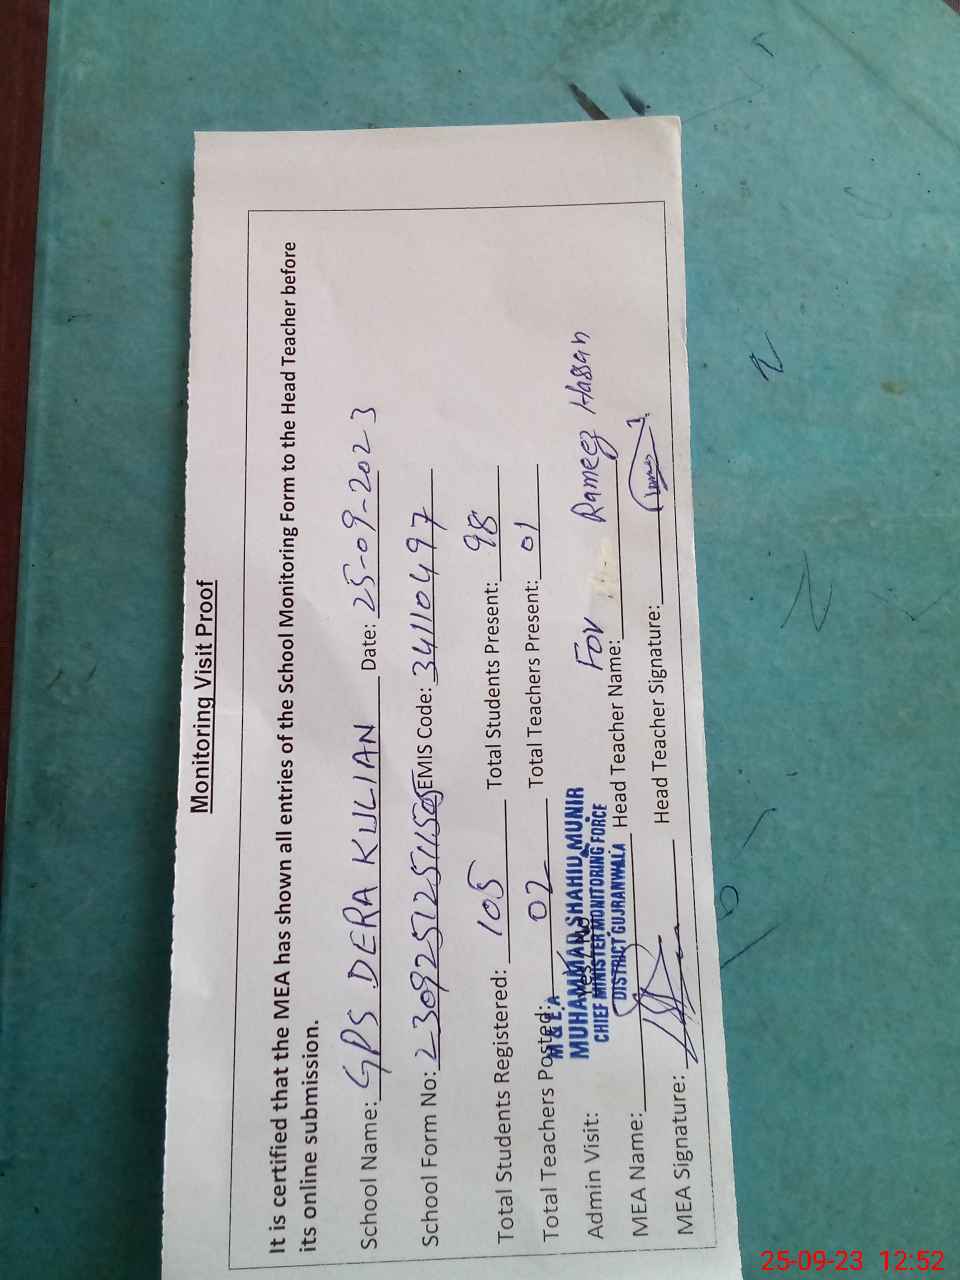 Monitoring Visit Proof
It is certified that the MEA has shown all entries of the School Monitoring Form to the Head Teacher before
its online submission.
School Name: GPS DERA KULIAN Date: 25-09-2023
School Form No: EMIS Code: 34110497
Total Students Registered: 105 Total Students Present: 98
Total Teachers Posted: 02 Total Teachers Present: 01
M & E.A
Admin Visit: Yes / No For Rameez Hassan
MUHAMMAD SHAHID MUNIR
CHIEF MINISTER MONITORING FORCE
DISTRICT GUJRANWALA
MEA Name: Head Teacher Name:
MEA Signature: Head Teacher Signature:
25-09-23 12:52